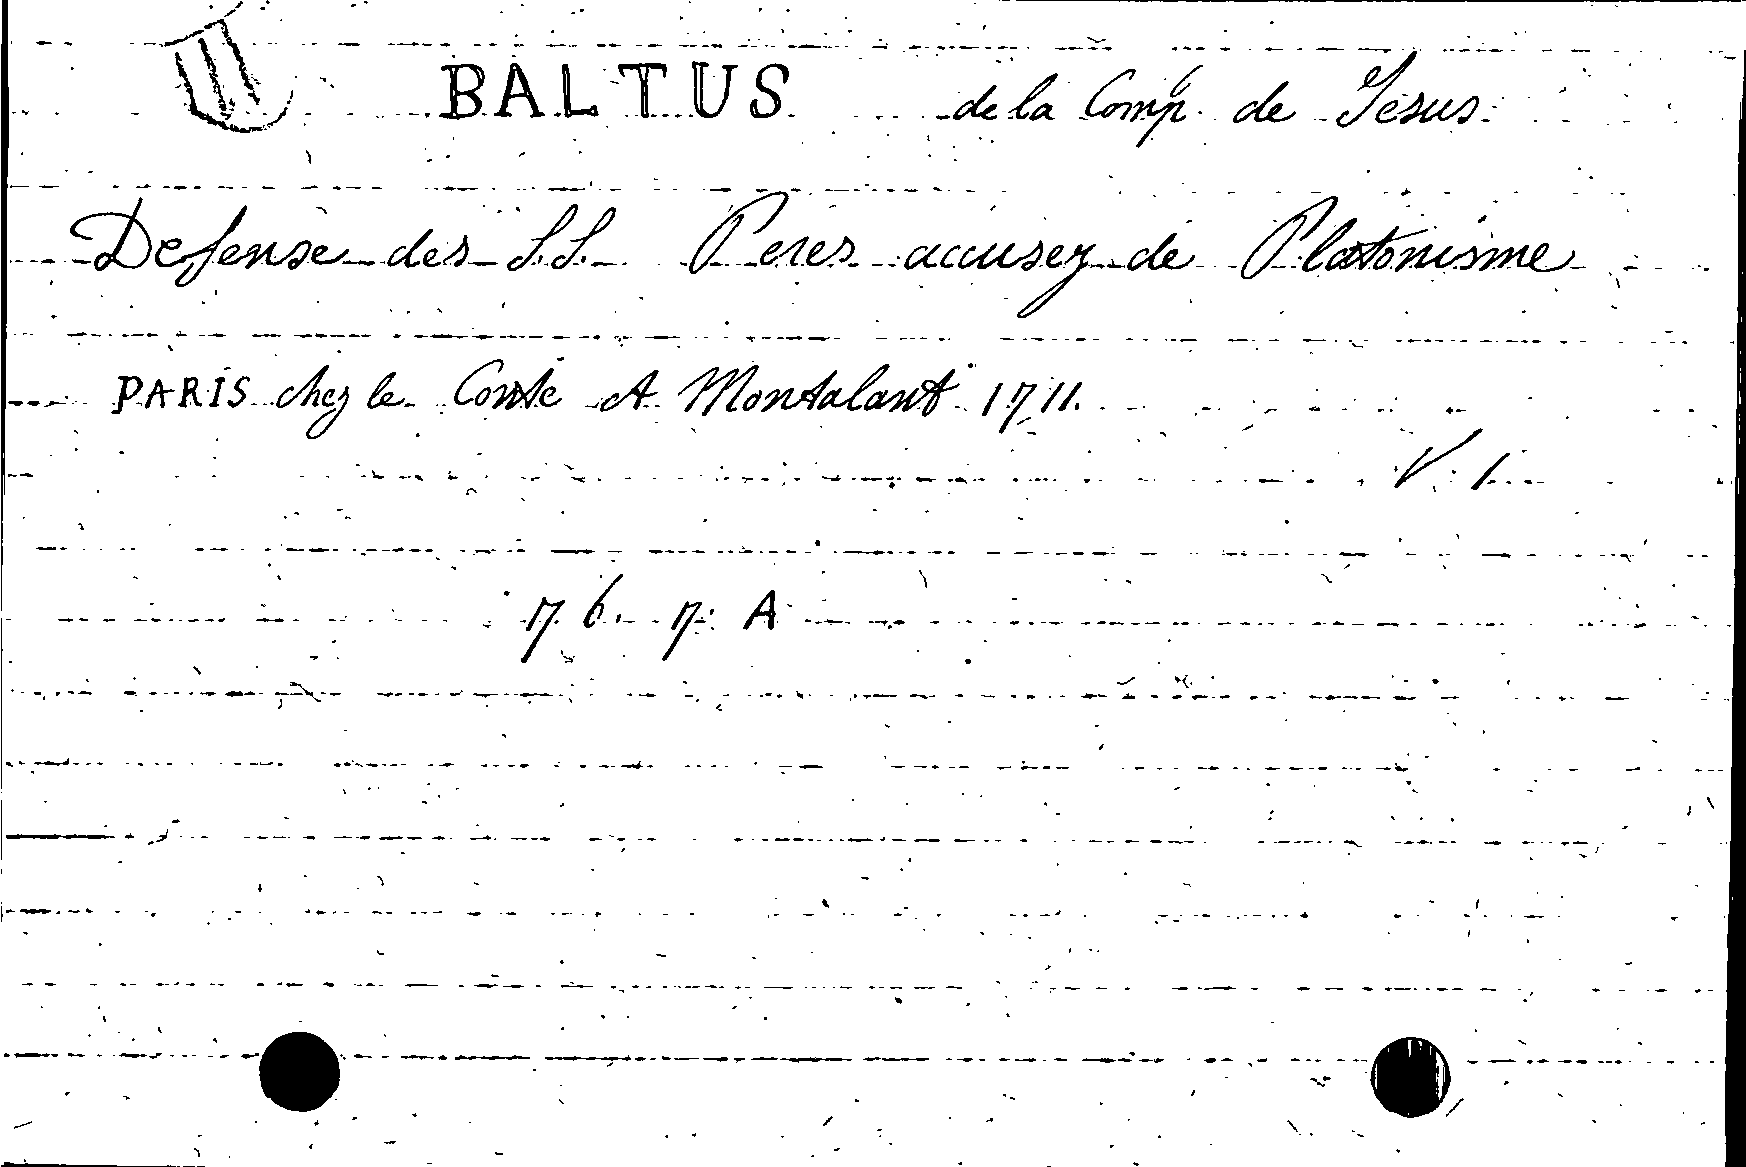 BALTUS de la Comp. de Jesus
Defense des S.S. Peres accusez de Platonisme
PARIS chez le Conte et Montalant 1711.
V. 1
76. 7. A